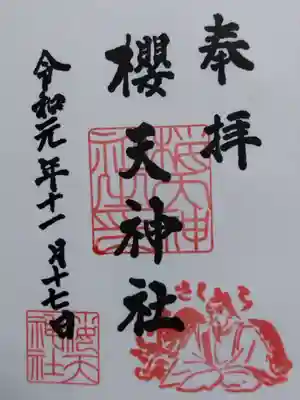 奉拝
櫻天神社
令和元年十一月十七日
櫻天神社印
さくら
櫻天神社